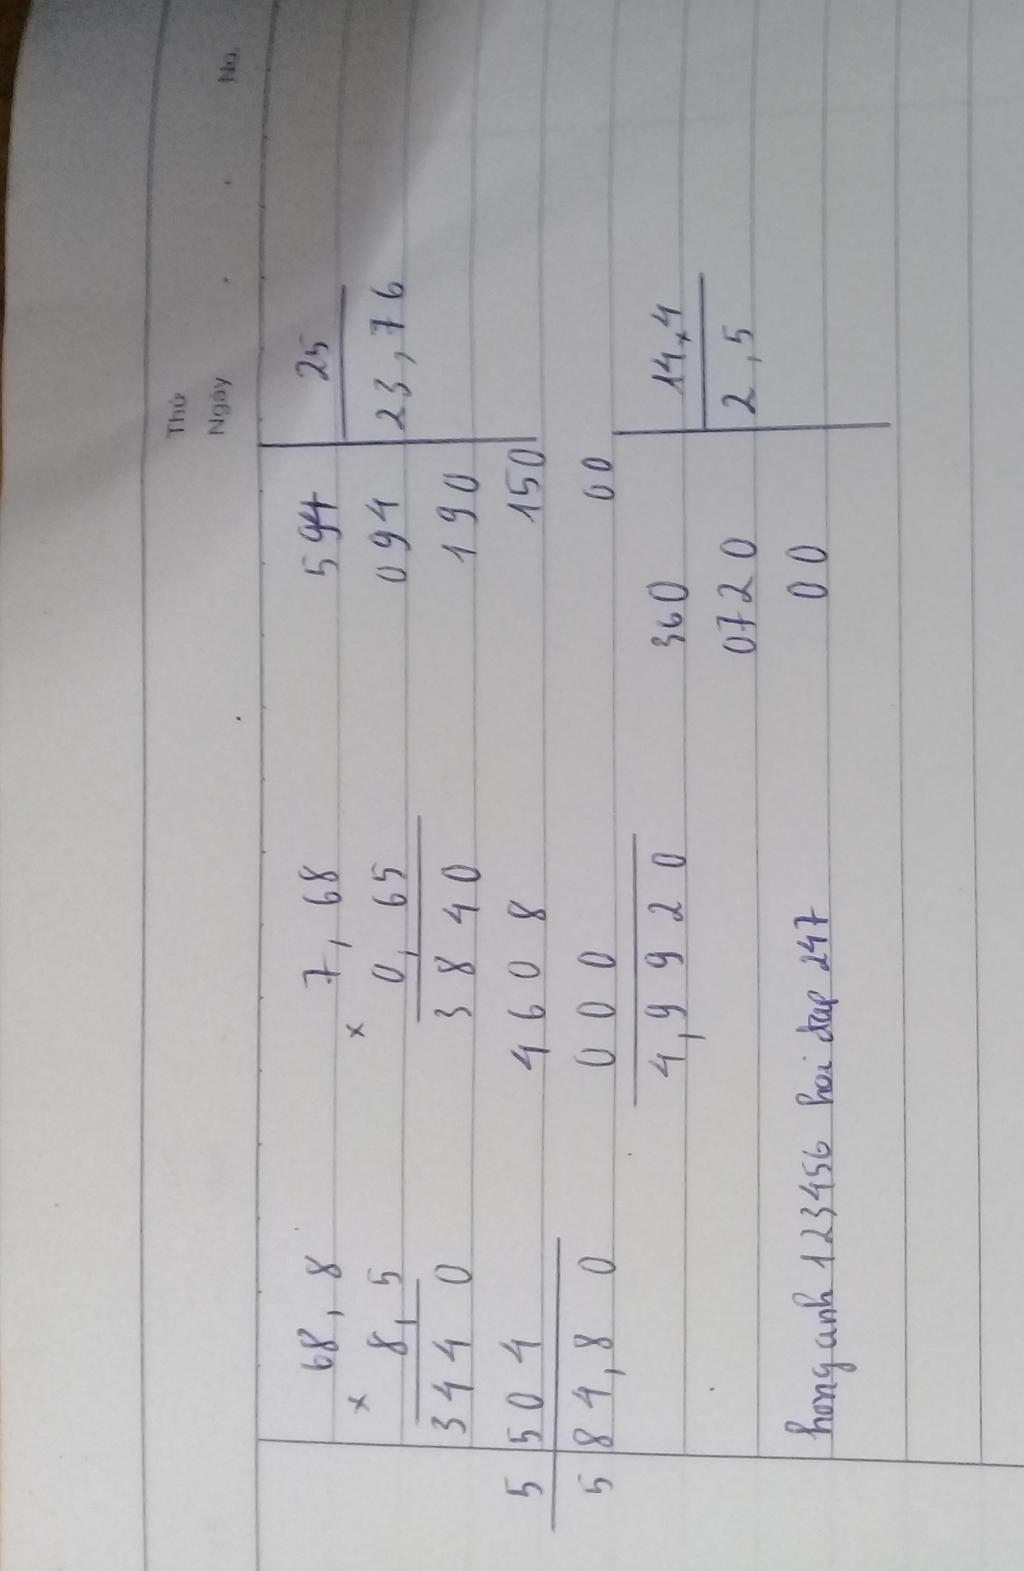 Thứ
Ngày . . No.
68,8
x
8,5
344 0
5 504
5 84,8 0
7,68
x
0,65
3 8 4 0
4 6 0 8
0 0 0
4,9 9 2 0
594 25
094 23,76
190
150
00
360 14,4
0720 2,5
00
honganh 123456 hoi dap 247